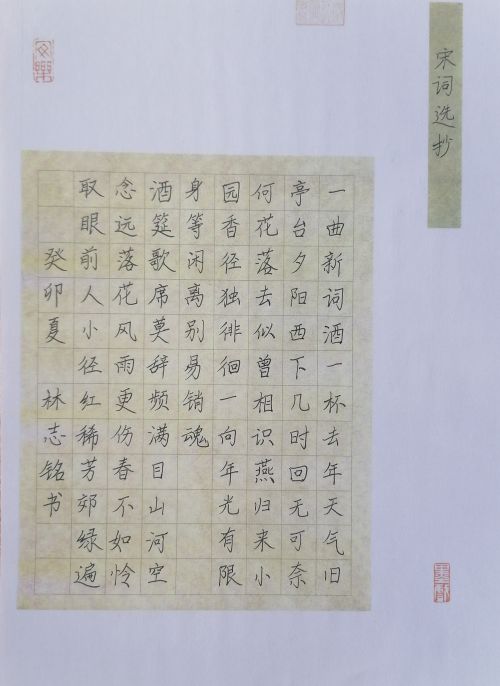 宋词选抄
一曲新词酒一杯去年天气旧
亭台夕阳西下几时回无可奈
何花落去似曾相识燕归来小
园香径独徘徊一向年光有限
身等闲离别易销魂
酒筵歌席莫辞频满目山河空
念远落花风雨更伤春不如怜
取眼前人小径红稀芳郊绿遍
癸卯夏 林志铭书